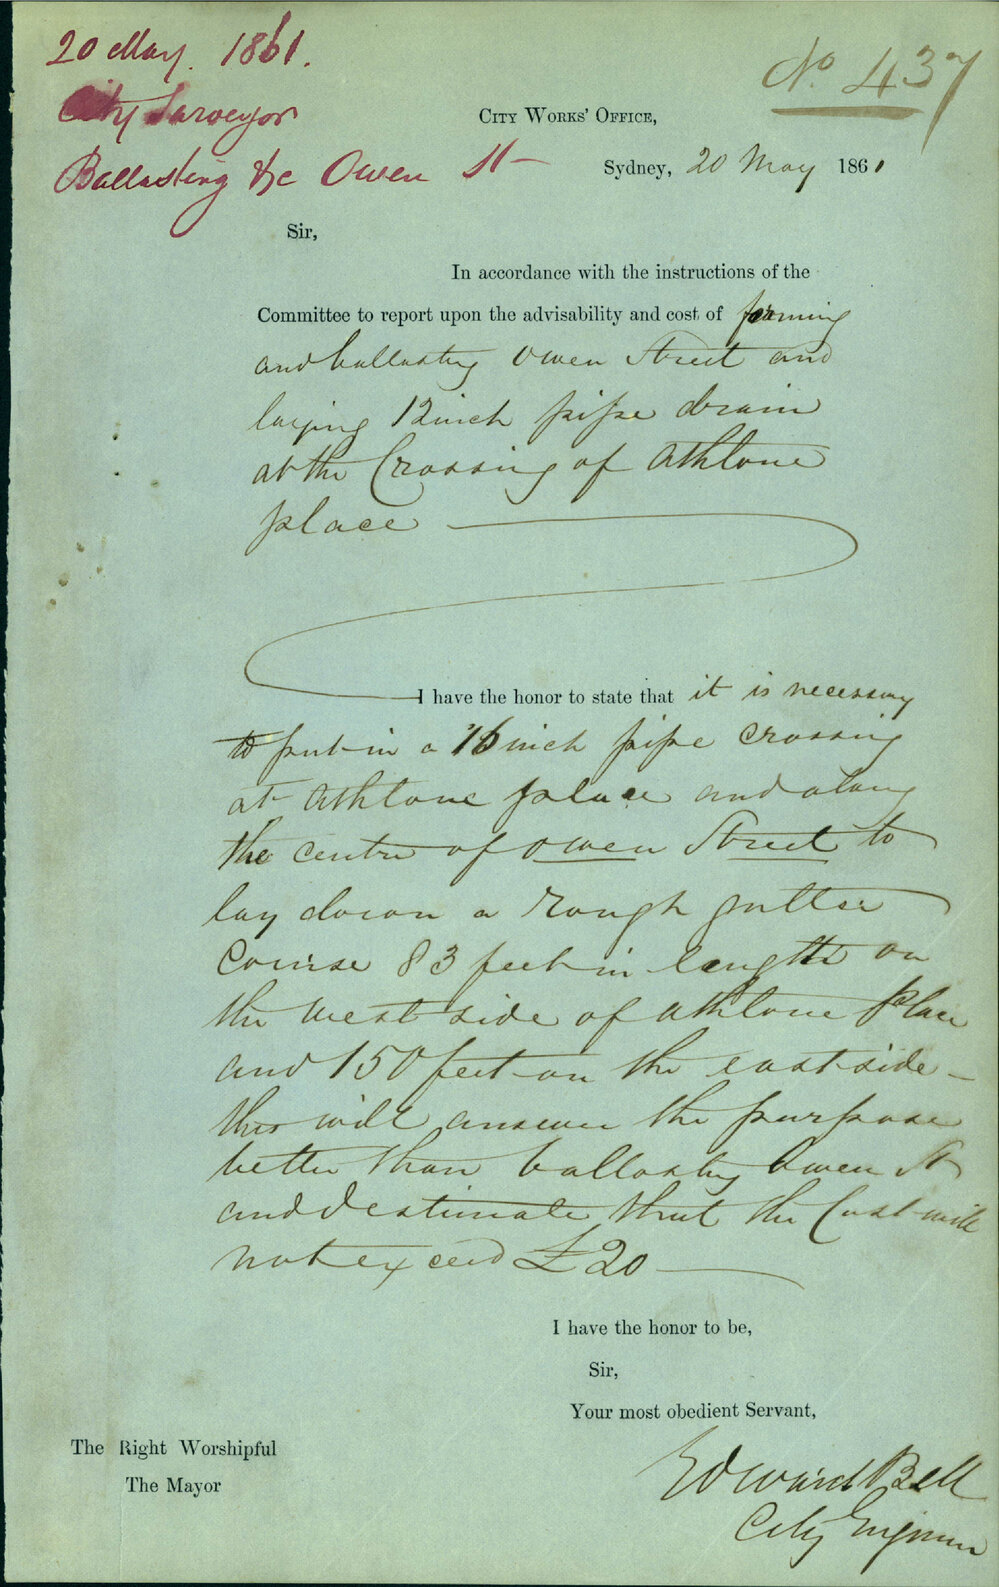 20 May. 1861.
City Surveyor
Ballasting &c Owen St
No. 437
City Works' Office,
Sydney, 20 May 1861
Sir,
In accordance with the instructions of the
Committee to report upon the advisability and cost of forming
and ballasting Owen Street and
laying 12 inch pipe drain
at the Crossing of Athlone
place
I have the honor to state that it is necessary
to put in a 16 inch pipe crossing
at Athlone place and along
the centre of Owen Street to
lay down a rough gutter
course 83 feet in length on
the west side of Athlone Place
and 150 feet on the east side -
this will answer the purpose
better than ballasting Owen St
and I estimate that the Cost will
not exceed £20
I have the honor to be,
Sir,
Your most obedient Servant,
The Right Worshipful
The Mayor
Edward Bell
City Engineer